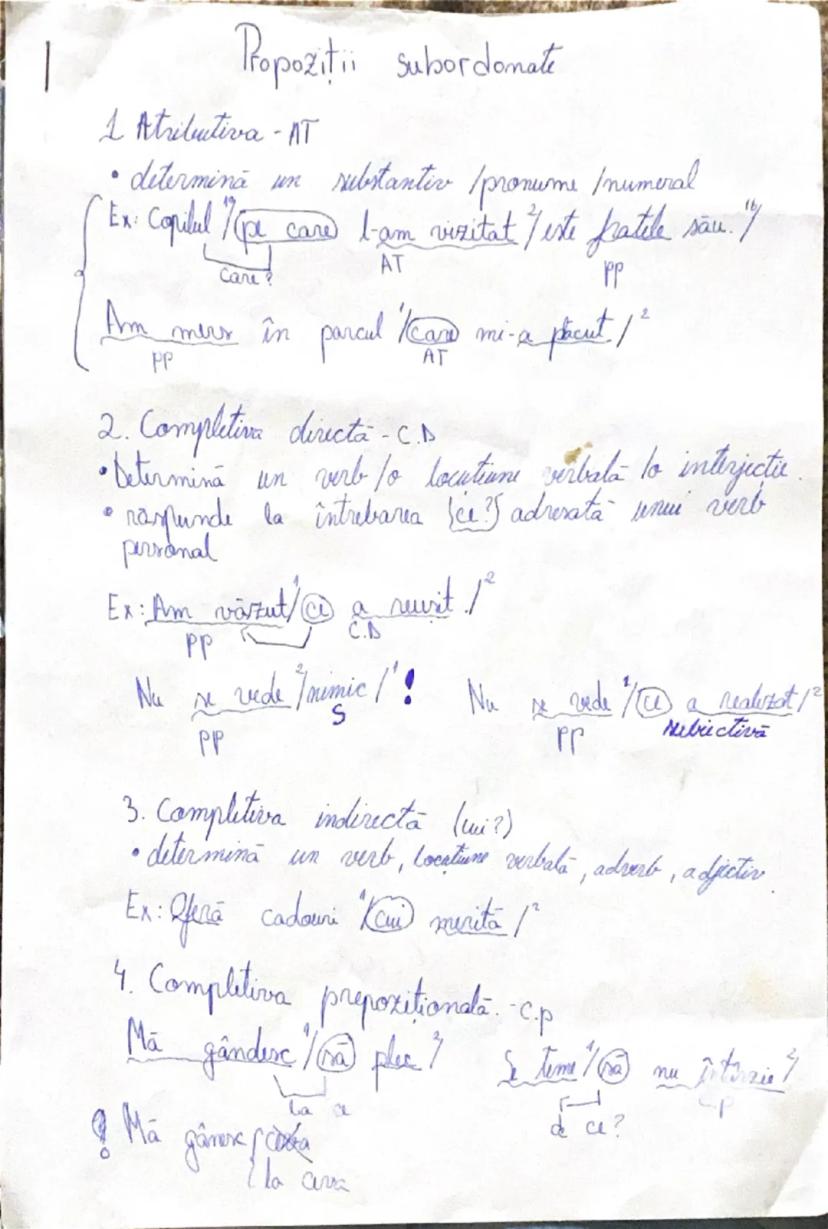 Propoziții subordonate
1 Atributiva - AT
• determină un substantiv /pronume /numeral
Ex: Copilul 1/ pe care l-am vizitat 2/ este fratele său. 1/
care? AT PP
Am mers în parcul 1/ care mi-a plăcut / 2
PP AT
2. Completiva directă - C.D
• Determină un verb /o locuțiune verbală /o interjecție.
• răspunde la întrebarea {ce?} adresată unui verb
personal
Ex: Am văzut 1/ ce a reușit. / 2
PP C.D
Nu se vede 2/ nimic / 1 ! Nu se vede 1/ ce a realizat / 2
PP S PP subiectivă
3. Completiva indirectă (cui?)
• determină un verb, locuțiune verbală, adverb, adjectiv.
Ex: Oferă cadouri 1/ cui merită / 2
4. Completiva prepozițională. - C.p
Mă gândesc 1/ să plec 2/ Se teme 1/ să nu întârzie 2/
la ce de ce? Cp
! Mă gânesc { ceva
la ceva